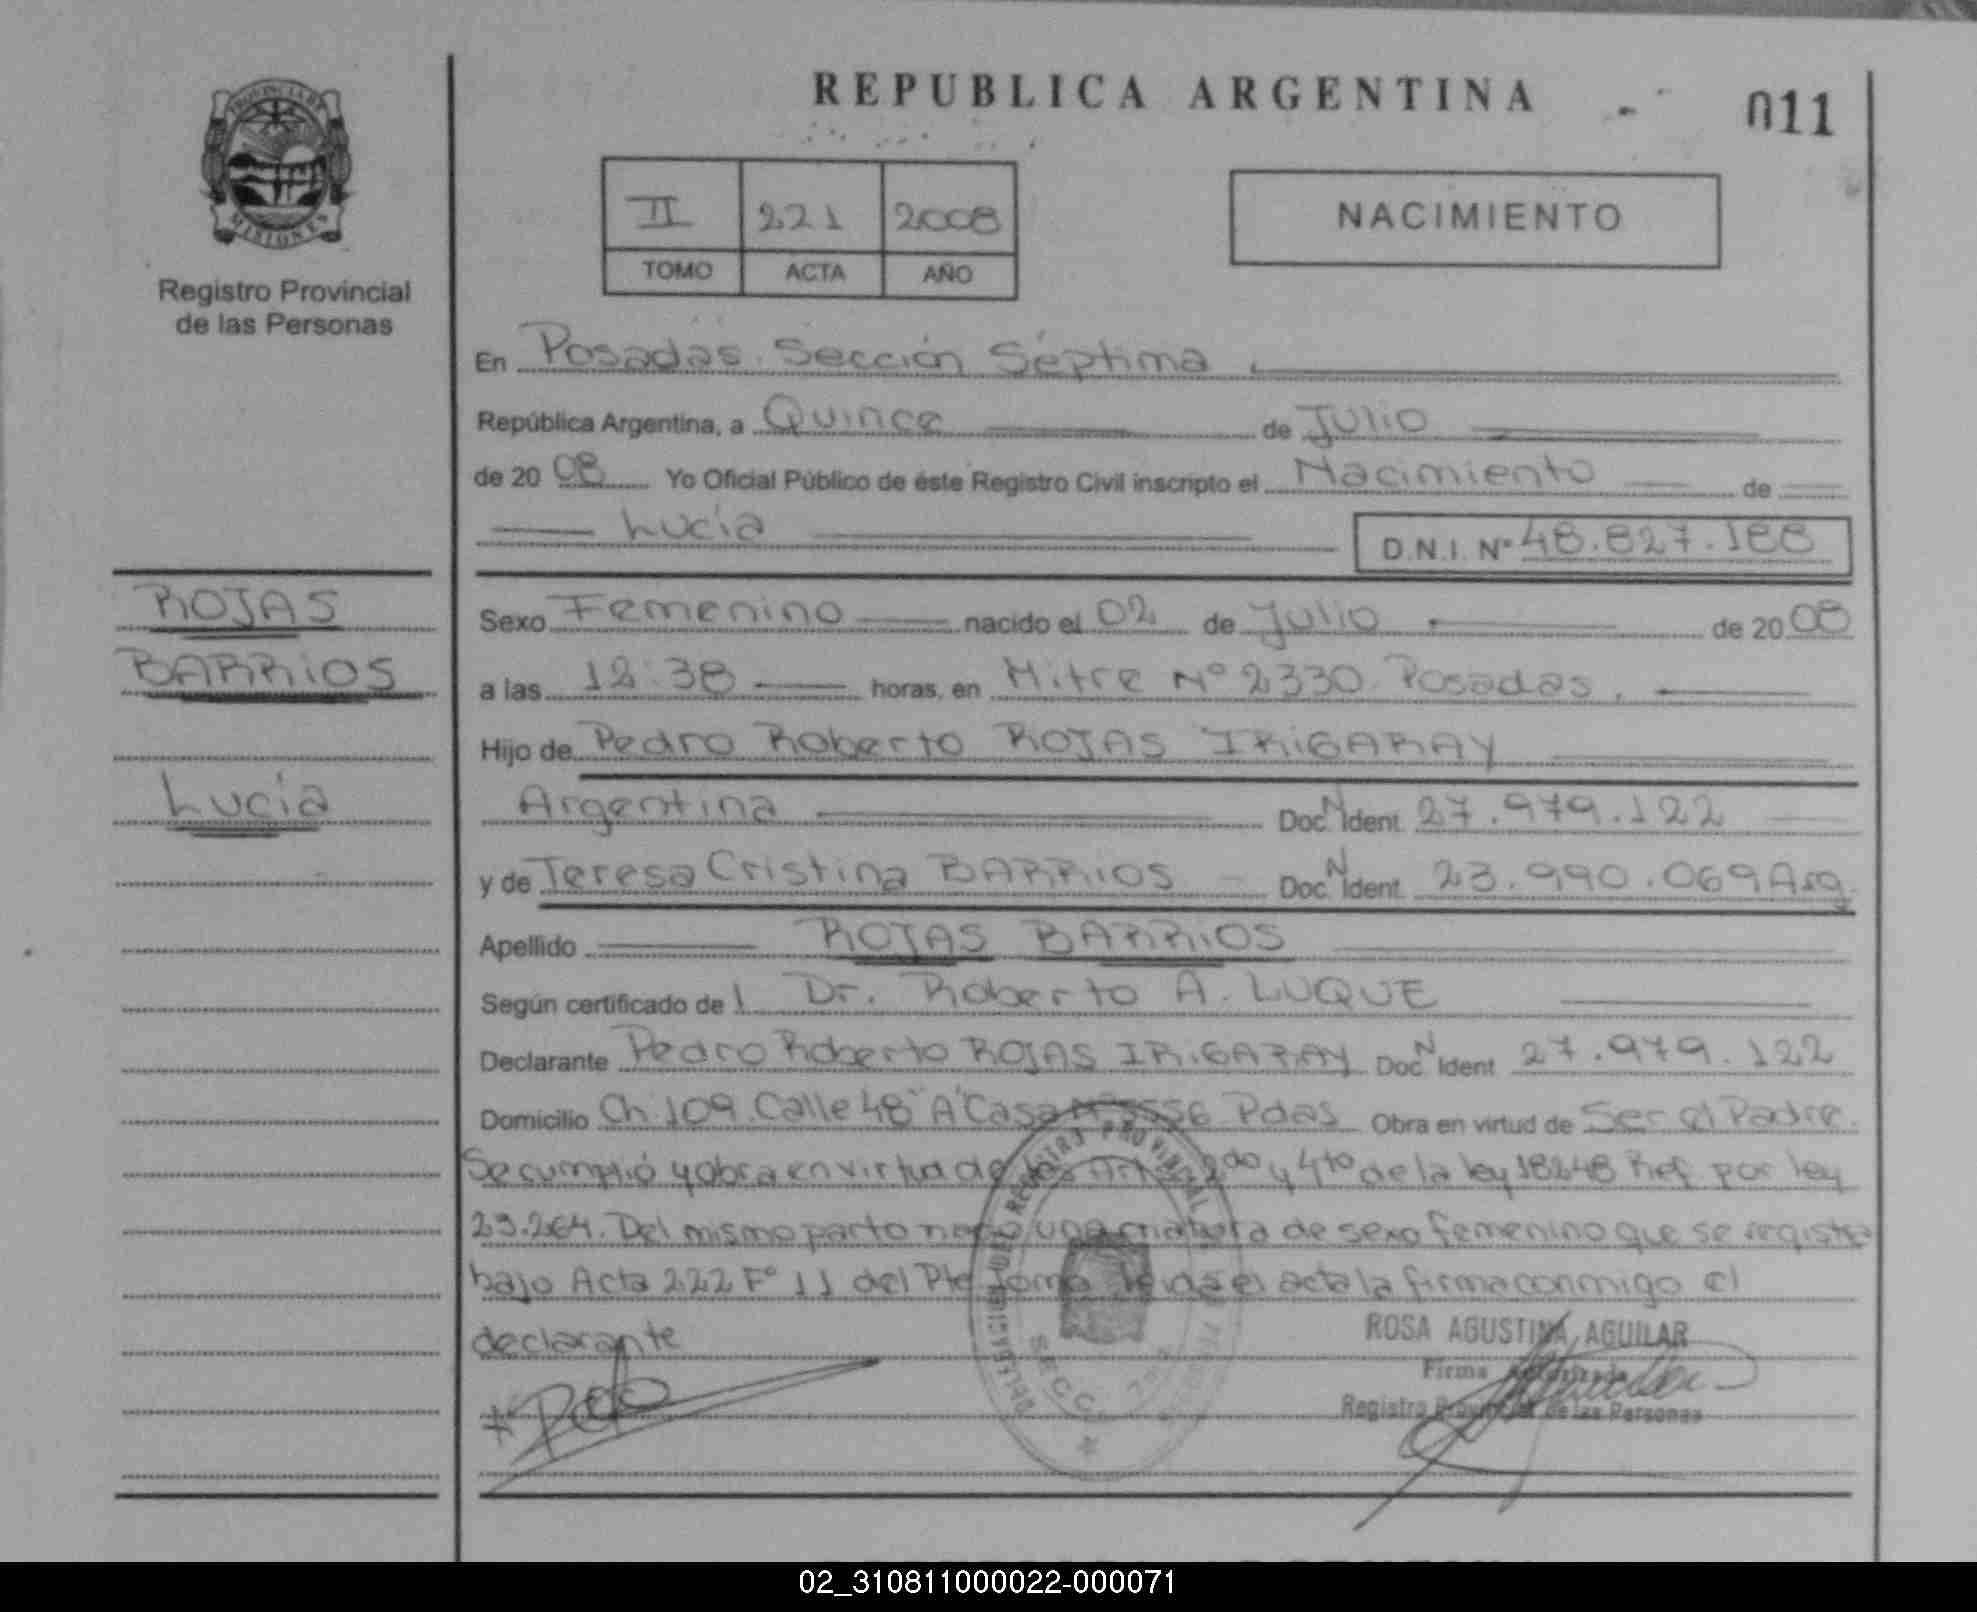 REPUBLICA ARGENTINA
011
PROVINCIA DE
MISIONES
Registro Provincial
de las Personas
II 221 2008
TOMO ACTA AÑO
NACIMIENTO
En Posadas. Sección Séptima
República Argentina, a Quince de Julio
de 2008 Yo Oficial Público de éste Registro Civil inscripto el Nacimiento de
Lucía D.N.I. Nº 48.827.188
ROJAS
BARRIOS
Lucía
Sexo Femenino nacido el 02 de Julio de 2008
a las 12:38 horas, en Mitre Nº 2330. Posadas.
Hijo de Pedro Roberto ROJAS IRIGARAY
Argentina Doc. N Ident. 27.979.122
y de Teresa Cristina BARRIOS Doc. N Ident. 23.990.069 Arg.
Apellido ROJAS BARRIOS
Según certificado de Dr. Roberto A. LUQUE
Declarante Pedro Roberto ROJAS IRIGARAY Doc. N Ident. 27.979.122
Domicilio Ch. 109. Calle 48 "A" Casa Pdas. Obra en virtud de Ser el Padre.
Se cumplió y obra en virtud de los Art. 2do y 4to de la ley 18248 Ref. por ley
23.264. Del mismo parto nació una criatura de sexo femenino que se registra
bajo Acta 222 Fº 11 del Pte Tomo Leída el acta la firma conmigo el
declarante
REGISTRO PROVINCIAL
SECC. 7ma
ROSA AGUSTINA AGUILAR
Firma Autorizada
Registro Provincial de las Personas
02_310811000022-000071